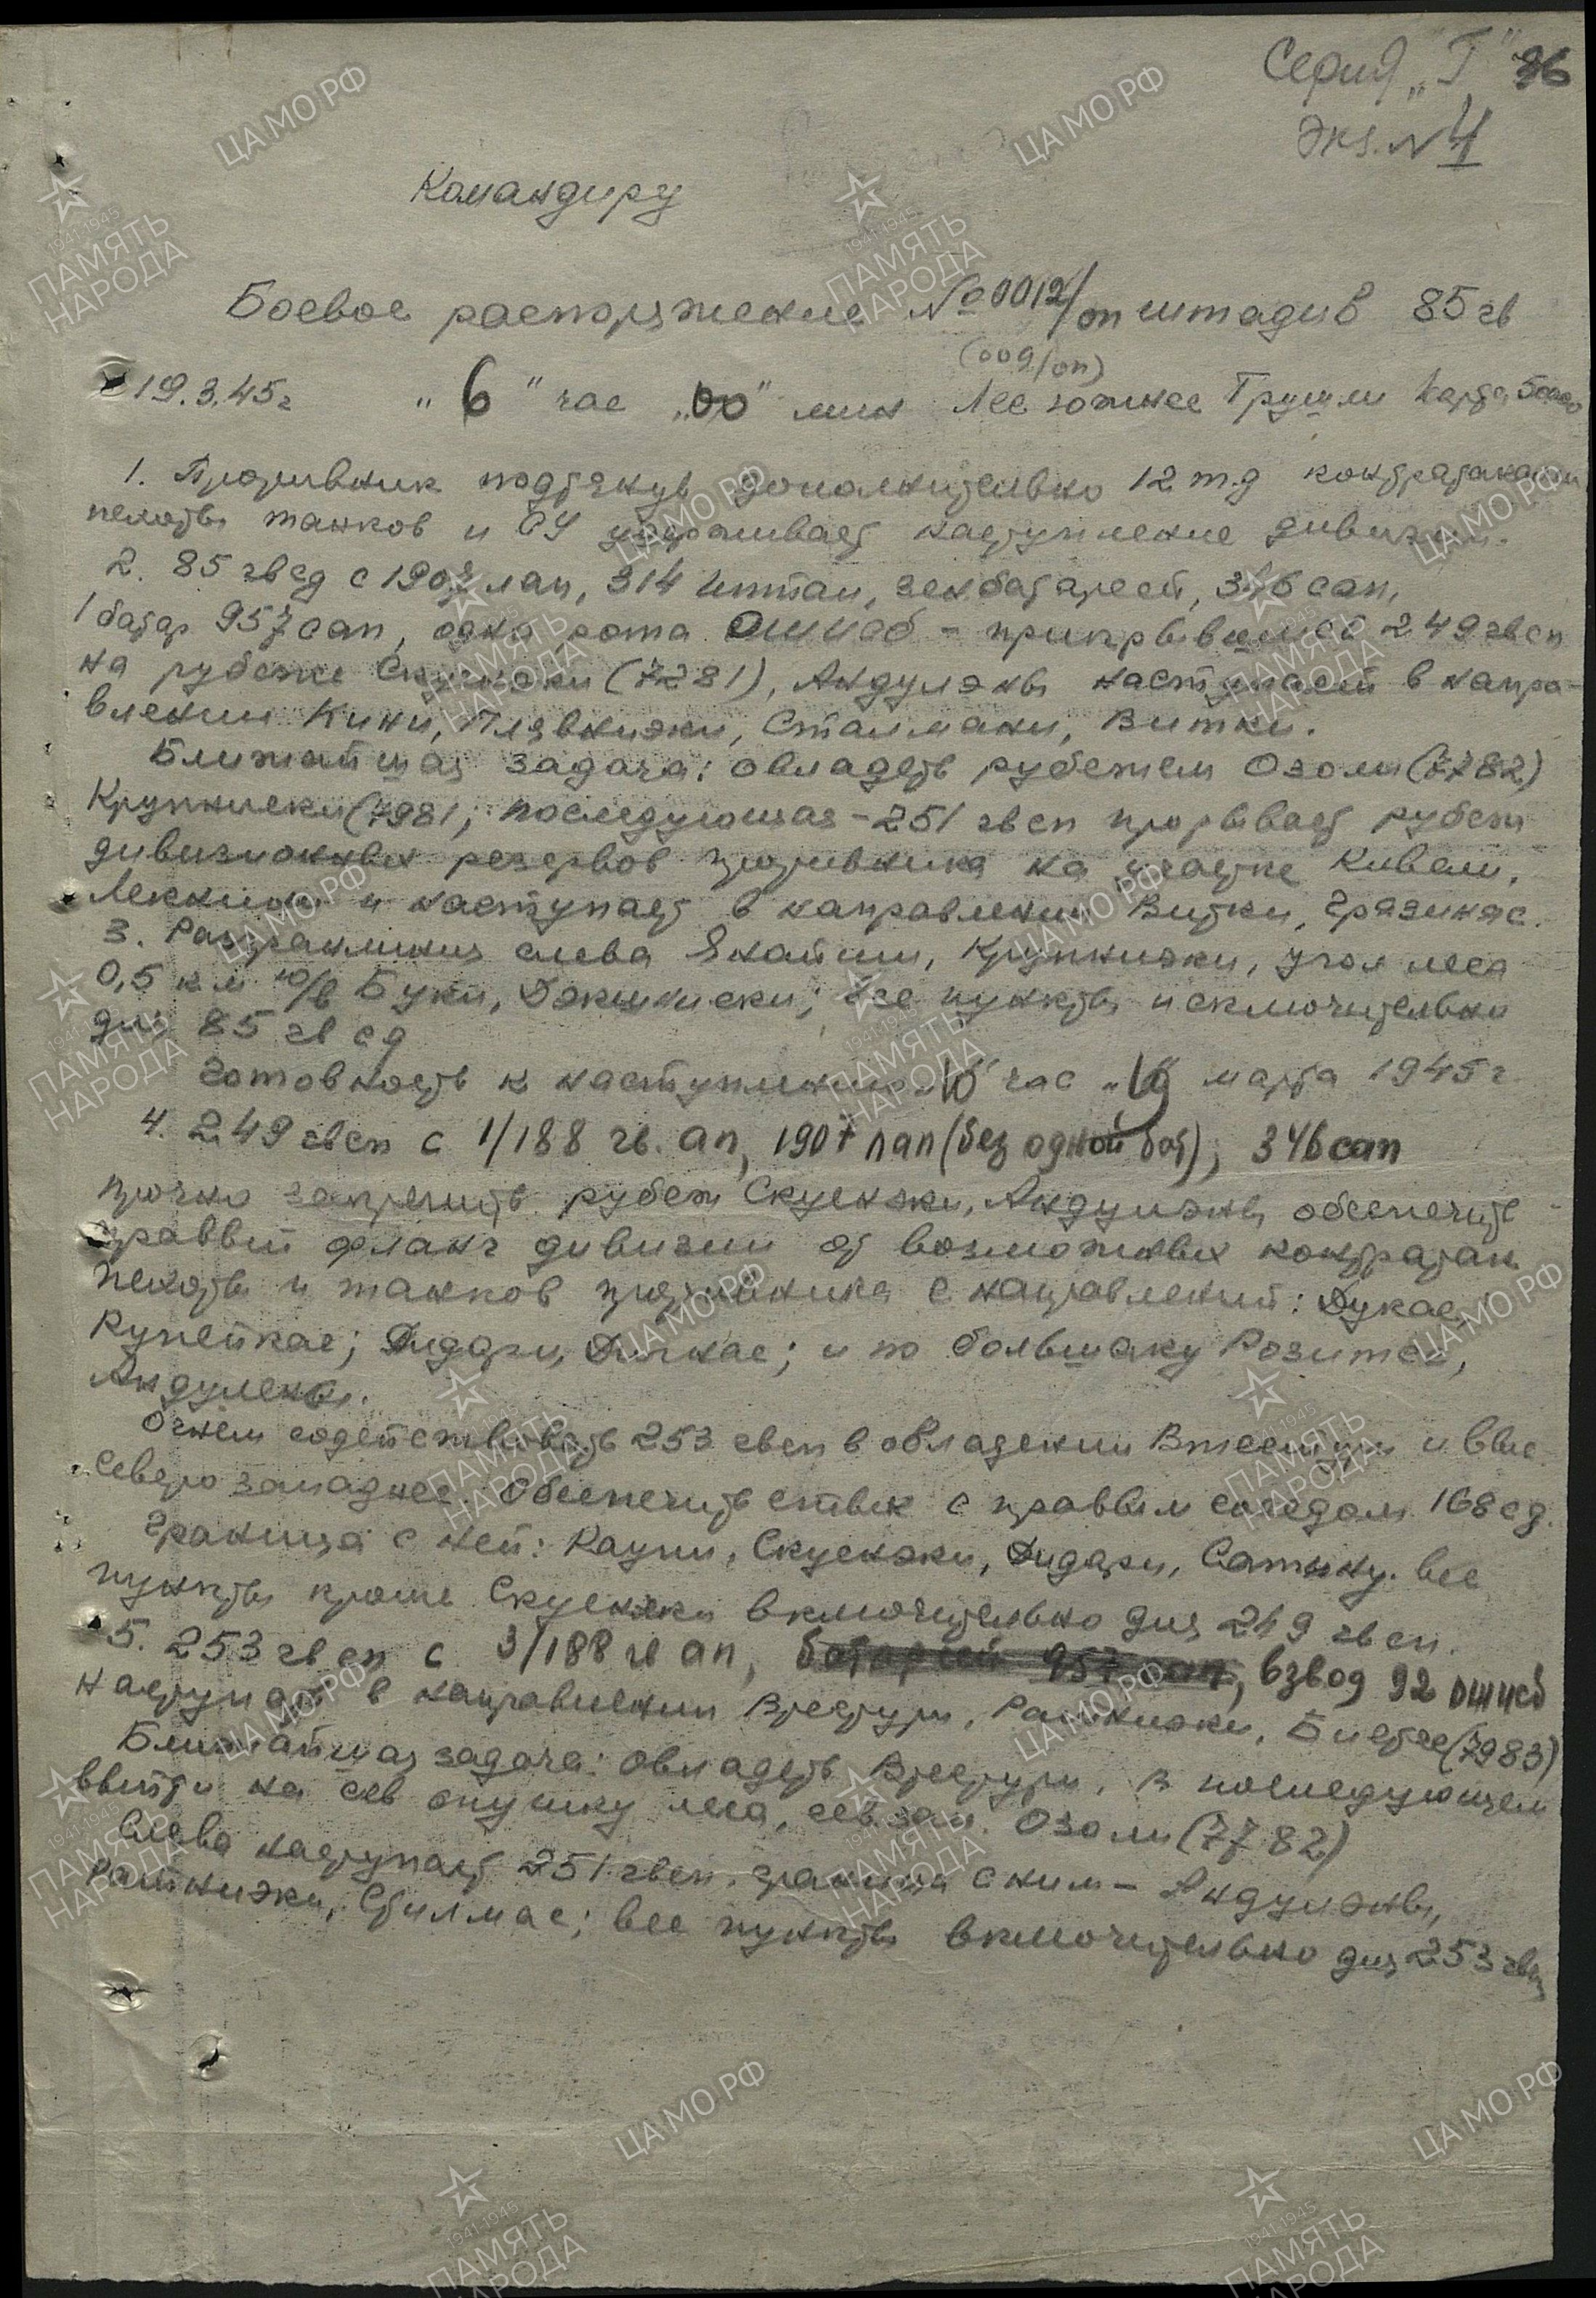 Серия „Г" 36
Экз. № 4
Командиру
Боевое распоряжение № 0012/оп штадив 85 гв
(009/оп)
19.3.45г „6" час „00" мин Лес южнее Грумли Карта
1. Противник подтянув дополнительно 12 тд контратаками
пехоты танков и СУ удерживает наступление дивизии.
2. 85 гв сд с 1907 лап, 314 иптап, зенбатареей, 346 сап,
1 батар 957 сап, одна рота ошисб - прикрывшись 249 гвсп
на рубеже Скуенэки (7281), Андулэны наступает в напра-
влении Кини, Плявниэки, Сталмани, Витки.
Ближайшая задача: овладеть рубежем Озоли (7782)
Крупниеки (7981, последующая - 251 гвсп прорывает рубеж
дивизионных резервов противника на участке Кивели,
и наступает в направлении Витки, Гразинас.
3. Разгранлиния слева Янайши, Крупниэки, угол леса
0,5 км ю/в Буки, все пункты исключительно
для 85 гв сд
Готовность к наступлению „10" час „19" марта 1945 г.
4. 249 гвсп с 1/188 гв. ап, 1907 лап (без одной бат), 346 сап
прочно закрепить рубеж Скуенэки, Андулэны обеспечить
правый фланг дивизии от возможных контратак
пехоты и танков противника с направлений: Дукас,
Купейкас; Дидари, и по большаку Розитес,
Андулены.
Огнем содействовать 253 гвсп в овладении Втестури и выс
северо западнее. Обеспечить стык с правым соседом 168 сд.
Граница с ней: Каупи, Скуенэки, Дидари, Сатыну. все
пункты кроме Скуенэки включительно для 249 гвсп.
5. 253 гвсп с 3/188 гв ап, батареей 957 сап, взвод 92 ошисб
наступать в направлении Врестури, Ратниэки, Биетэс (7983)
Ближайшая задача: овладеть Врестури, в последующем
выйти на сев опушку леса, сев. зап. Озоли (7782)
Слева наступает 251 гвсп. граница с ним - Андулэны,
Ратниэки, Стилмас; все пункты включительно для 253 гвсп
ЦАМО РФ
1941-1945
ПАМЯТЬ
НАРОДА